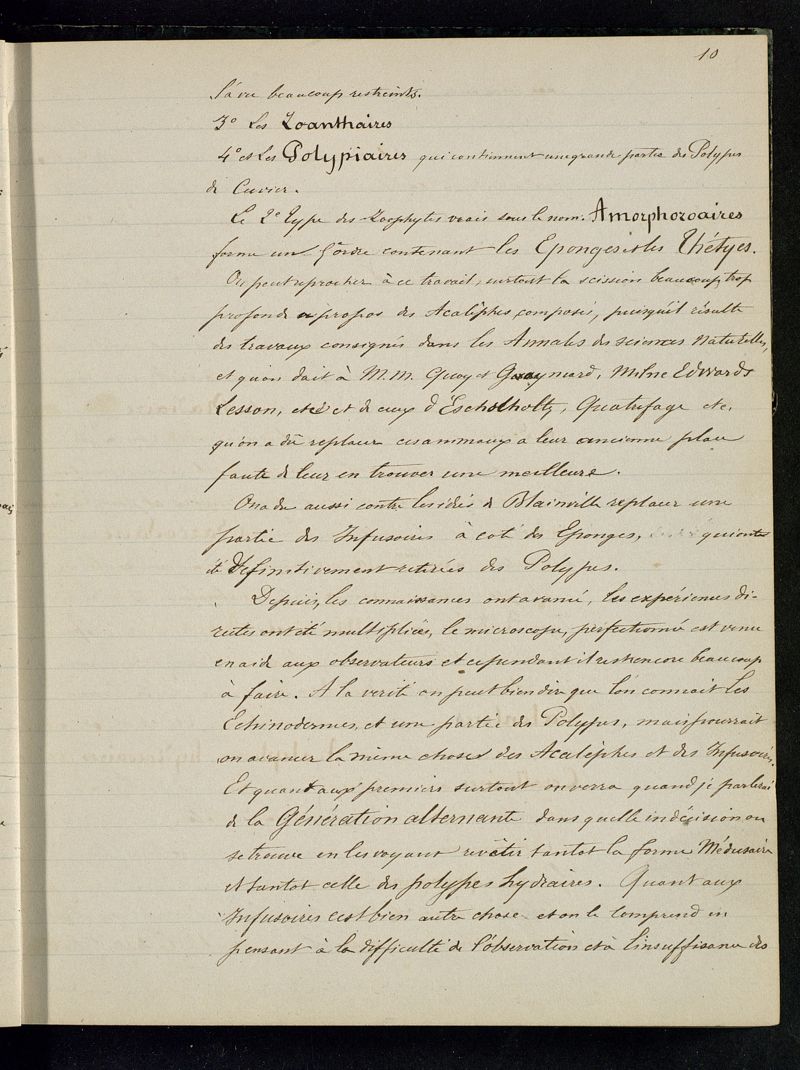 10
l'a vu beaucoup restreints.
3° Les Zoanthaires
4° et Les Polypiaires qui contiennent une grande partie des Polypes
de Cuvier.
Le 2e type des Zoophytes vrais sous le nom. Amorphozoaires
forme un ordre contenant les Eponges et les Thétyes.
On peut reprocher à ce travail, surtout la scission beaucoup trop
profonde a propos des Acalèphes composés, puisqu'il résulte
des travaux consignés dans les Annales des sciences Naturelles,
et qu'on doit à M.M. Quoy et Gaymard, Milne Edwards
Lesson, et de ceux d'Escholholtz, Quatrefage etc,
qu'on a dû replacer ces animaux a leur ancienne place
faute de leur en trouver une meilleure.
On a du aussi contre les idées de Blainville replacer une
partie des Infusoires à coté des Eponges, qui ont
été définitivement retirées des Polypes.
Depuis, les connaissances ont avancé, les expériences di-
rectes ont été multipliées, le microscope, perfectionné est venu
en aide aux observateurs et cependant il reste encore beaucoup
à faire. A la verité on peut bien dire que l'on connait les
Echinodermes, et une partie des Polypes, mais pourrait
on avancer la même chose des Acalèphes et des Infusoires.
Et quant aux premiers surtout on verra quand je parlerai
de la Génération alternante dans quelle indécision on
se trouve en les voyant revêtir tantot la forme Médusaire
et tantot celle des polypes hydraires. Quant aux
Infusoires c'est bien autre chose et on le comprend en
pensant à la difficulté de l'observation et à l'insuffisance des